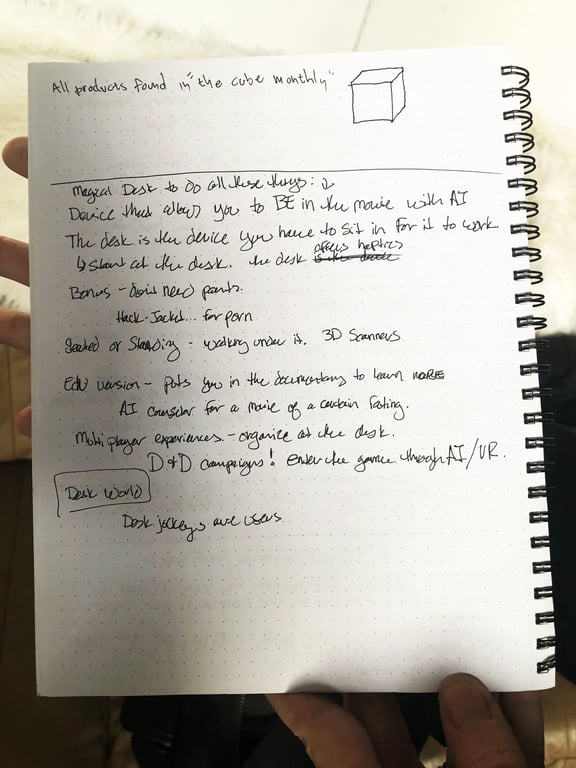 All products found in "the cube monthly"
Magical Desk to do all these things: ↓
Device that allows you to BE in the movie with AI
The desk is the device you have to sit in for it to work.
↳ start at the desk. the desk offers heptics
Bonus - don't need pants.
Hack-Jacket... for porn
Seated or Standing - walking under it. 3D Scanners
Edu version - puts you in the documentary to learn MORE
AI counselor for a movie of a certain rating.
Multiplayer experiences - organize at the desk.
D+D campaigns! enter the game through AI/VR.
Desk World
Desk jockeys are users.